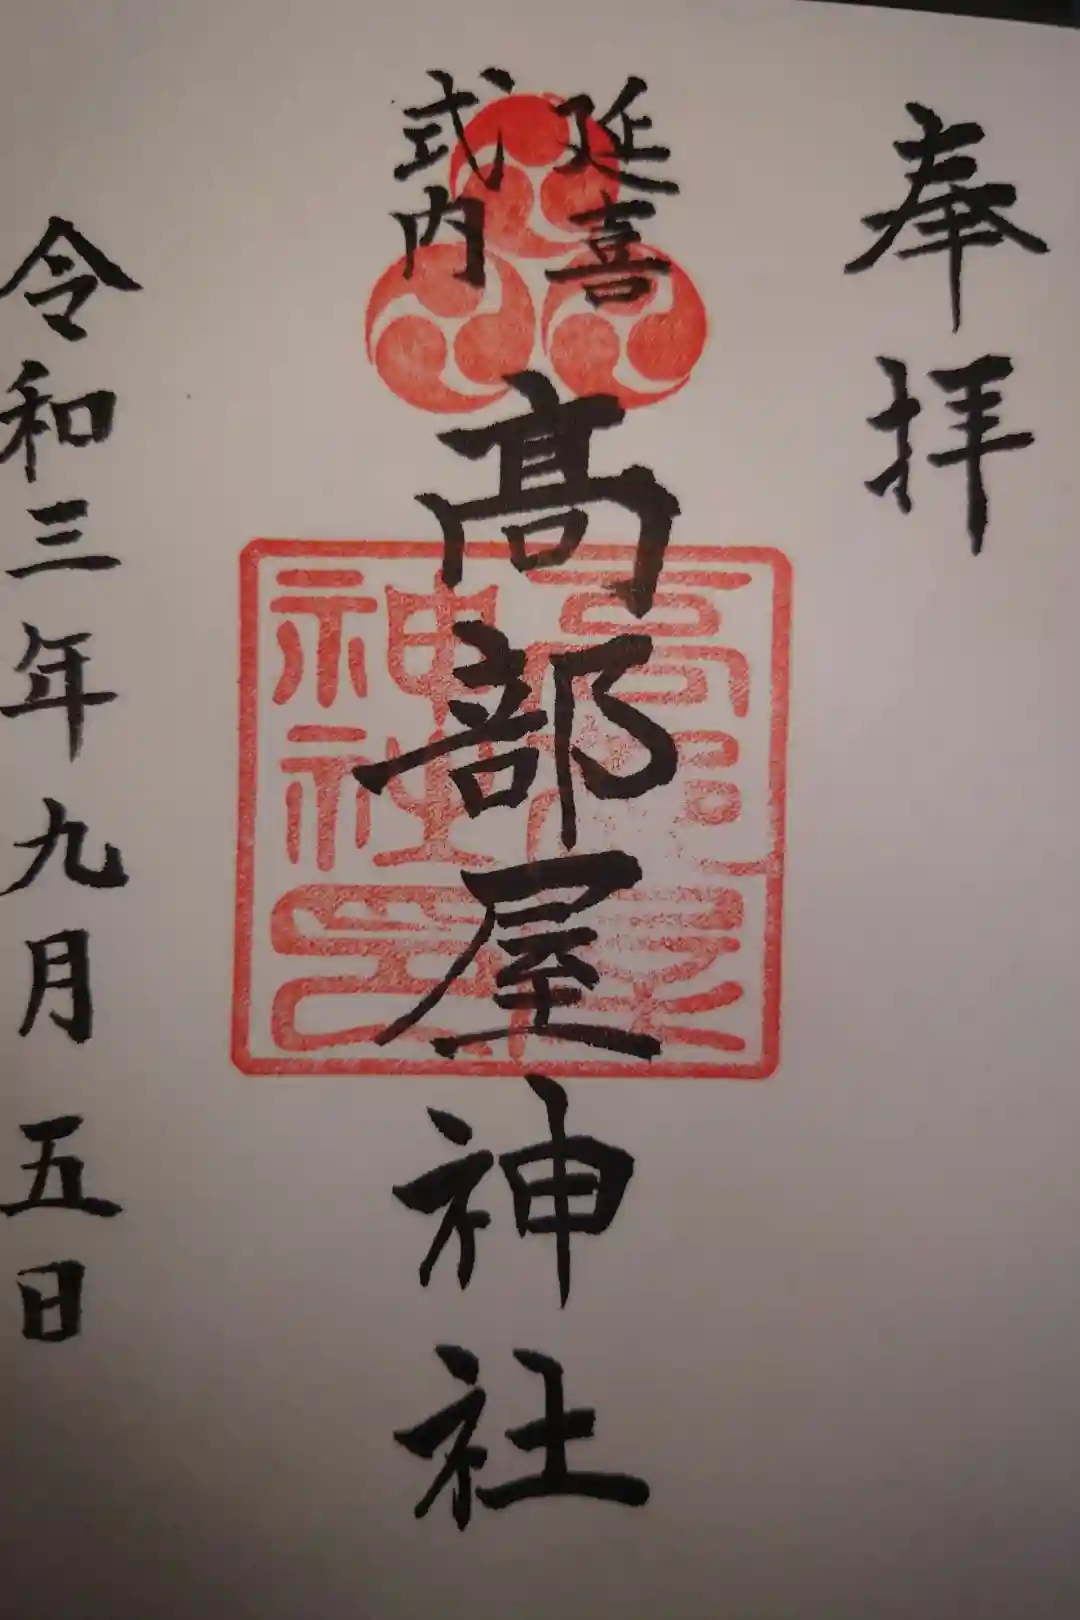 奉拝
延喜
式内
髙部屋神社
髙部屋
神社印
令和三年九月五日